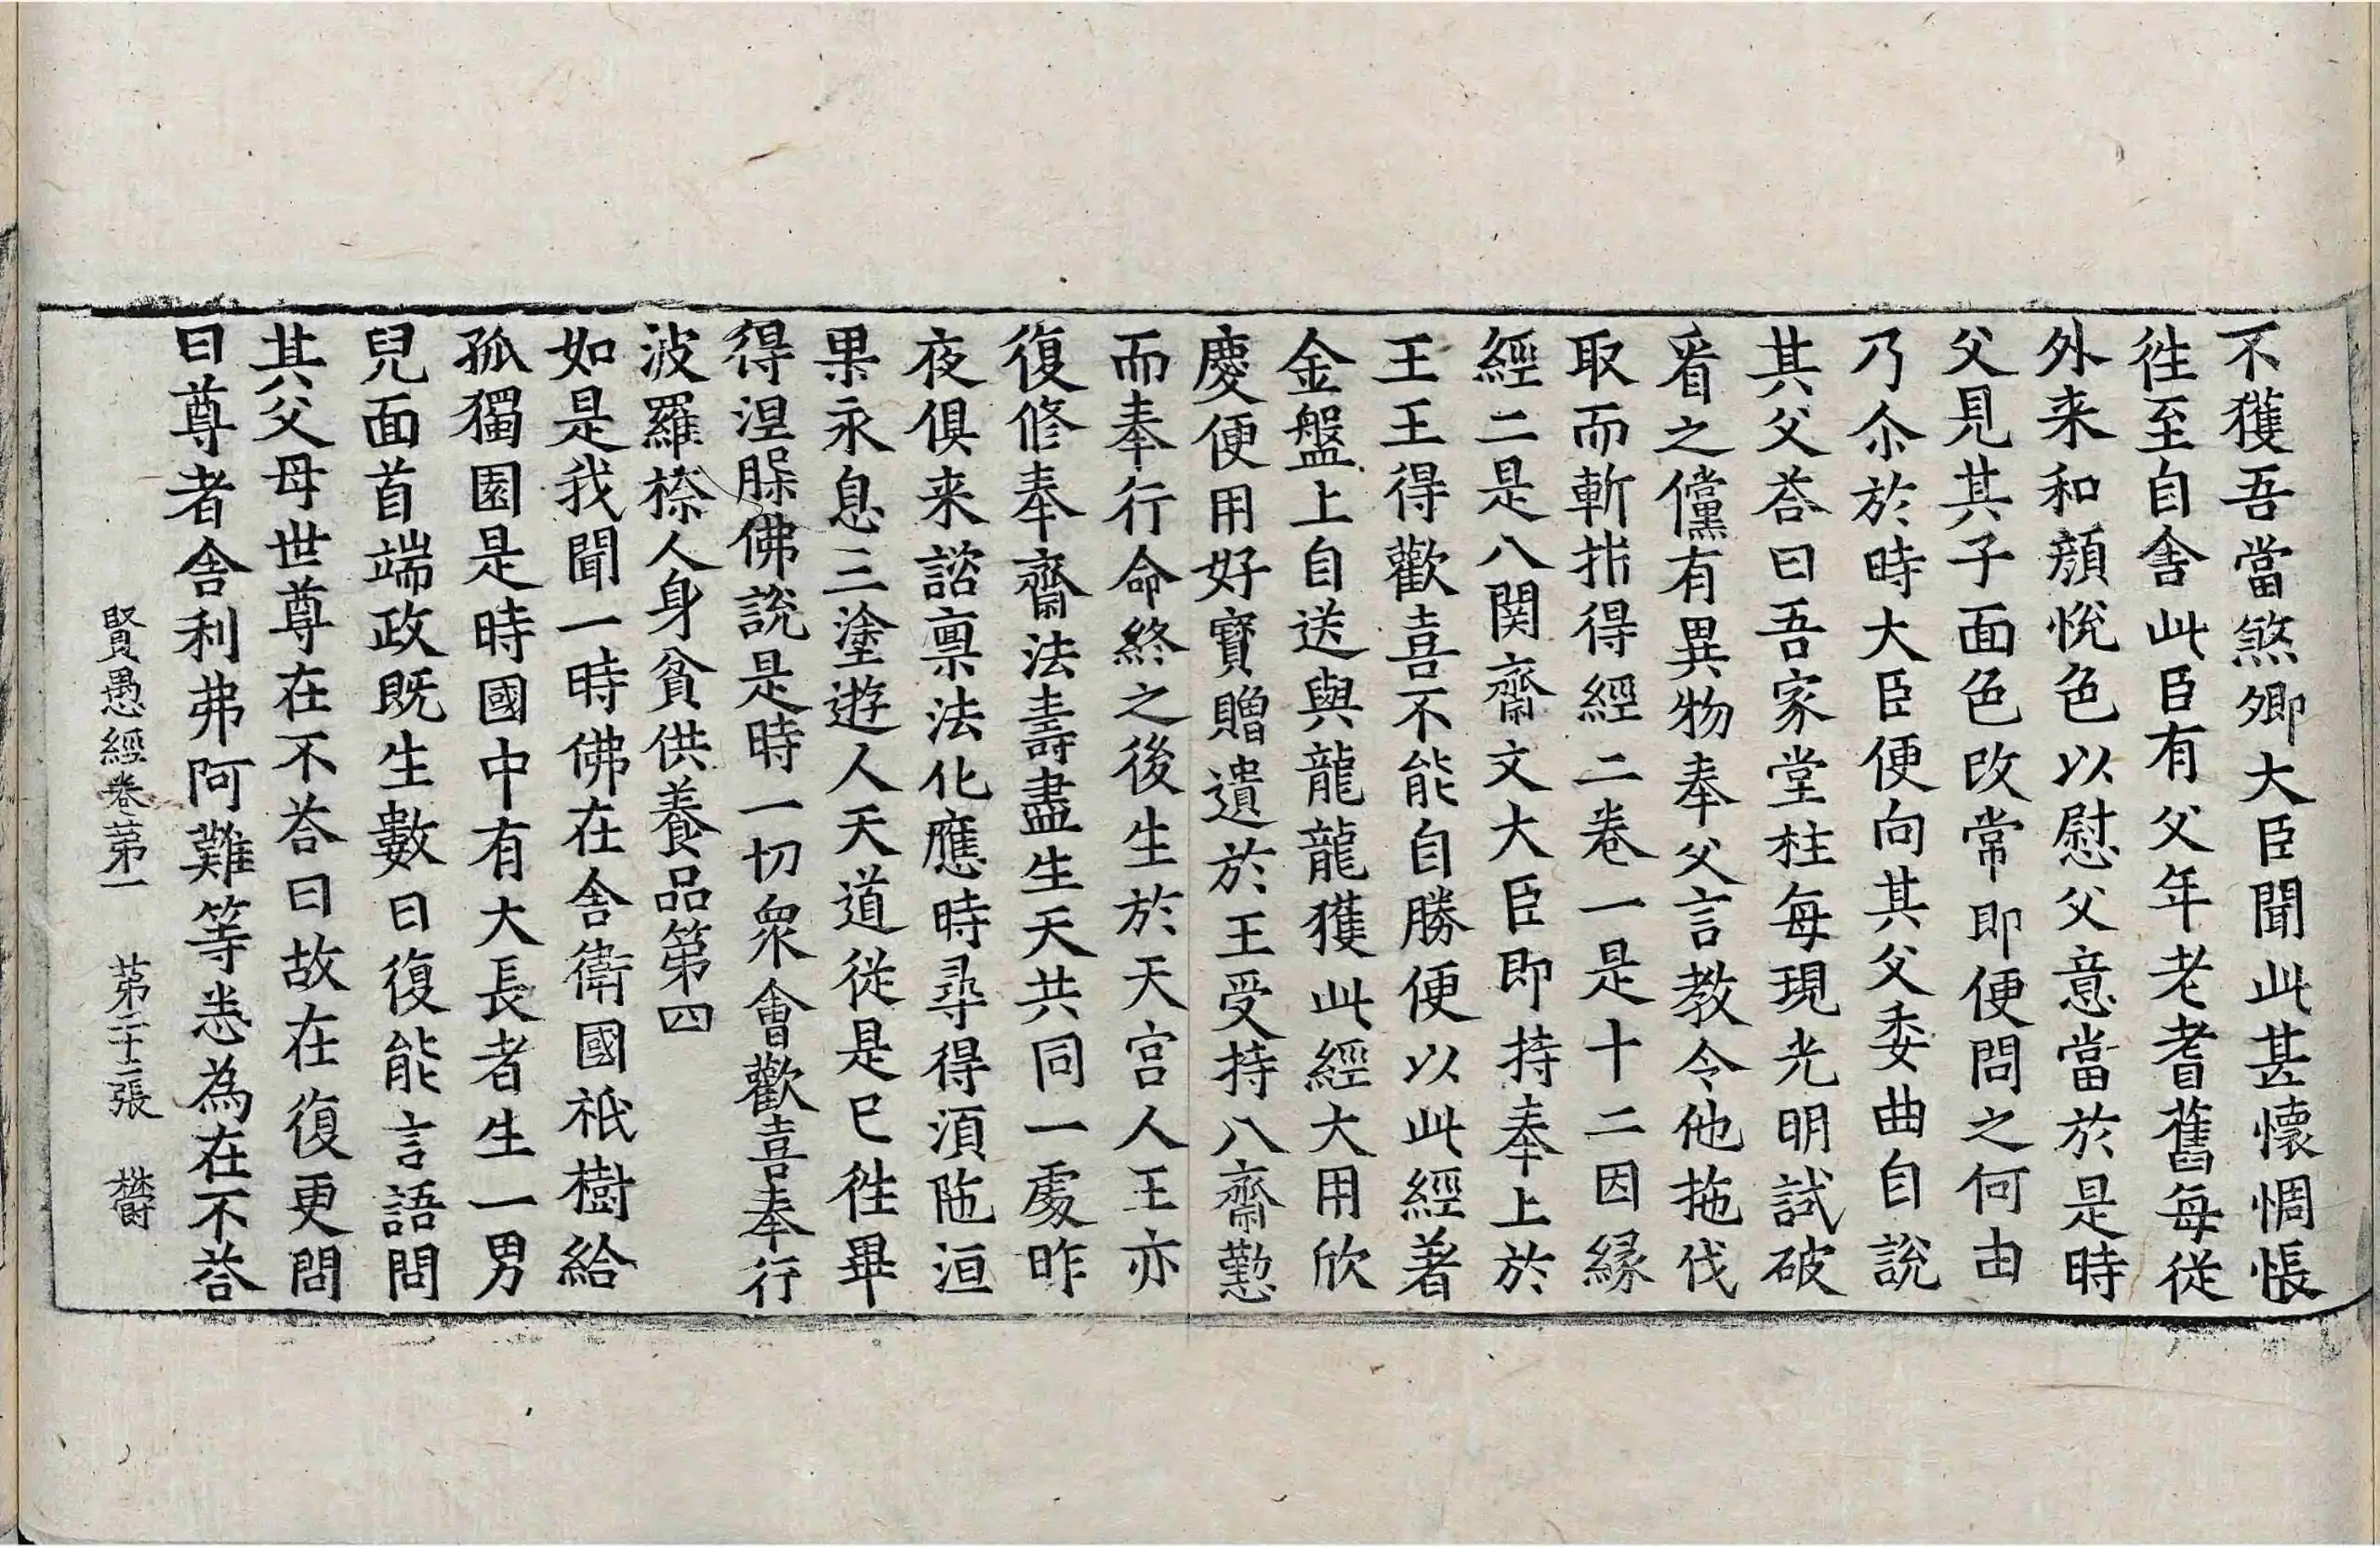 不獲吾當煞卿大臣聞此甚懷惆悵
徃至自舍此臣有父年老耆舊每從
外来和顔悅色以慰父意當於是時
父見其子面色改常即便問之何由
乃尒於時大臣便向其父委曲自說
其父荅曰吾家堂柱每現光明試破
看之儻有異物奉父言教令他拖伐
取而斬㭊得經二卷一是十二因縁
經二是八関齋文大臣即持奉上於
王王得歡喜不能自勝便以此經著
金盤上自送與龍龍獲此經大用欣
慶便用好寶贈遺於王受持八齋懃
而奉行命終之後生於天宮人王亦
復修奉齋法壽盡生天共同一處昨
夜俱来諮禀法化應時尋得湏陁洹
果永息三塗遊人天道從是已徃畢
得涅槃佛說是時一切衆會歡喜奉行
波羅㮈人身貧供養品第四
如是我聞一時佛在舍衛國祇樹給
孤獨園是時國中有大長者生一男
兒面首端政既生數日復能言語問
其父母世尊在不荅曰故在復更問
曰尊者舍利弗阿難等悉為在不荅
賢愚經卷第一　第二十二張　欝